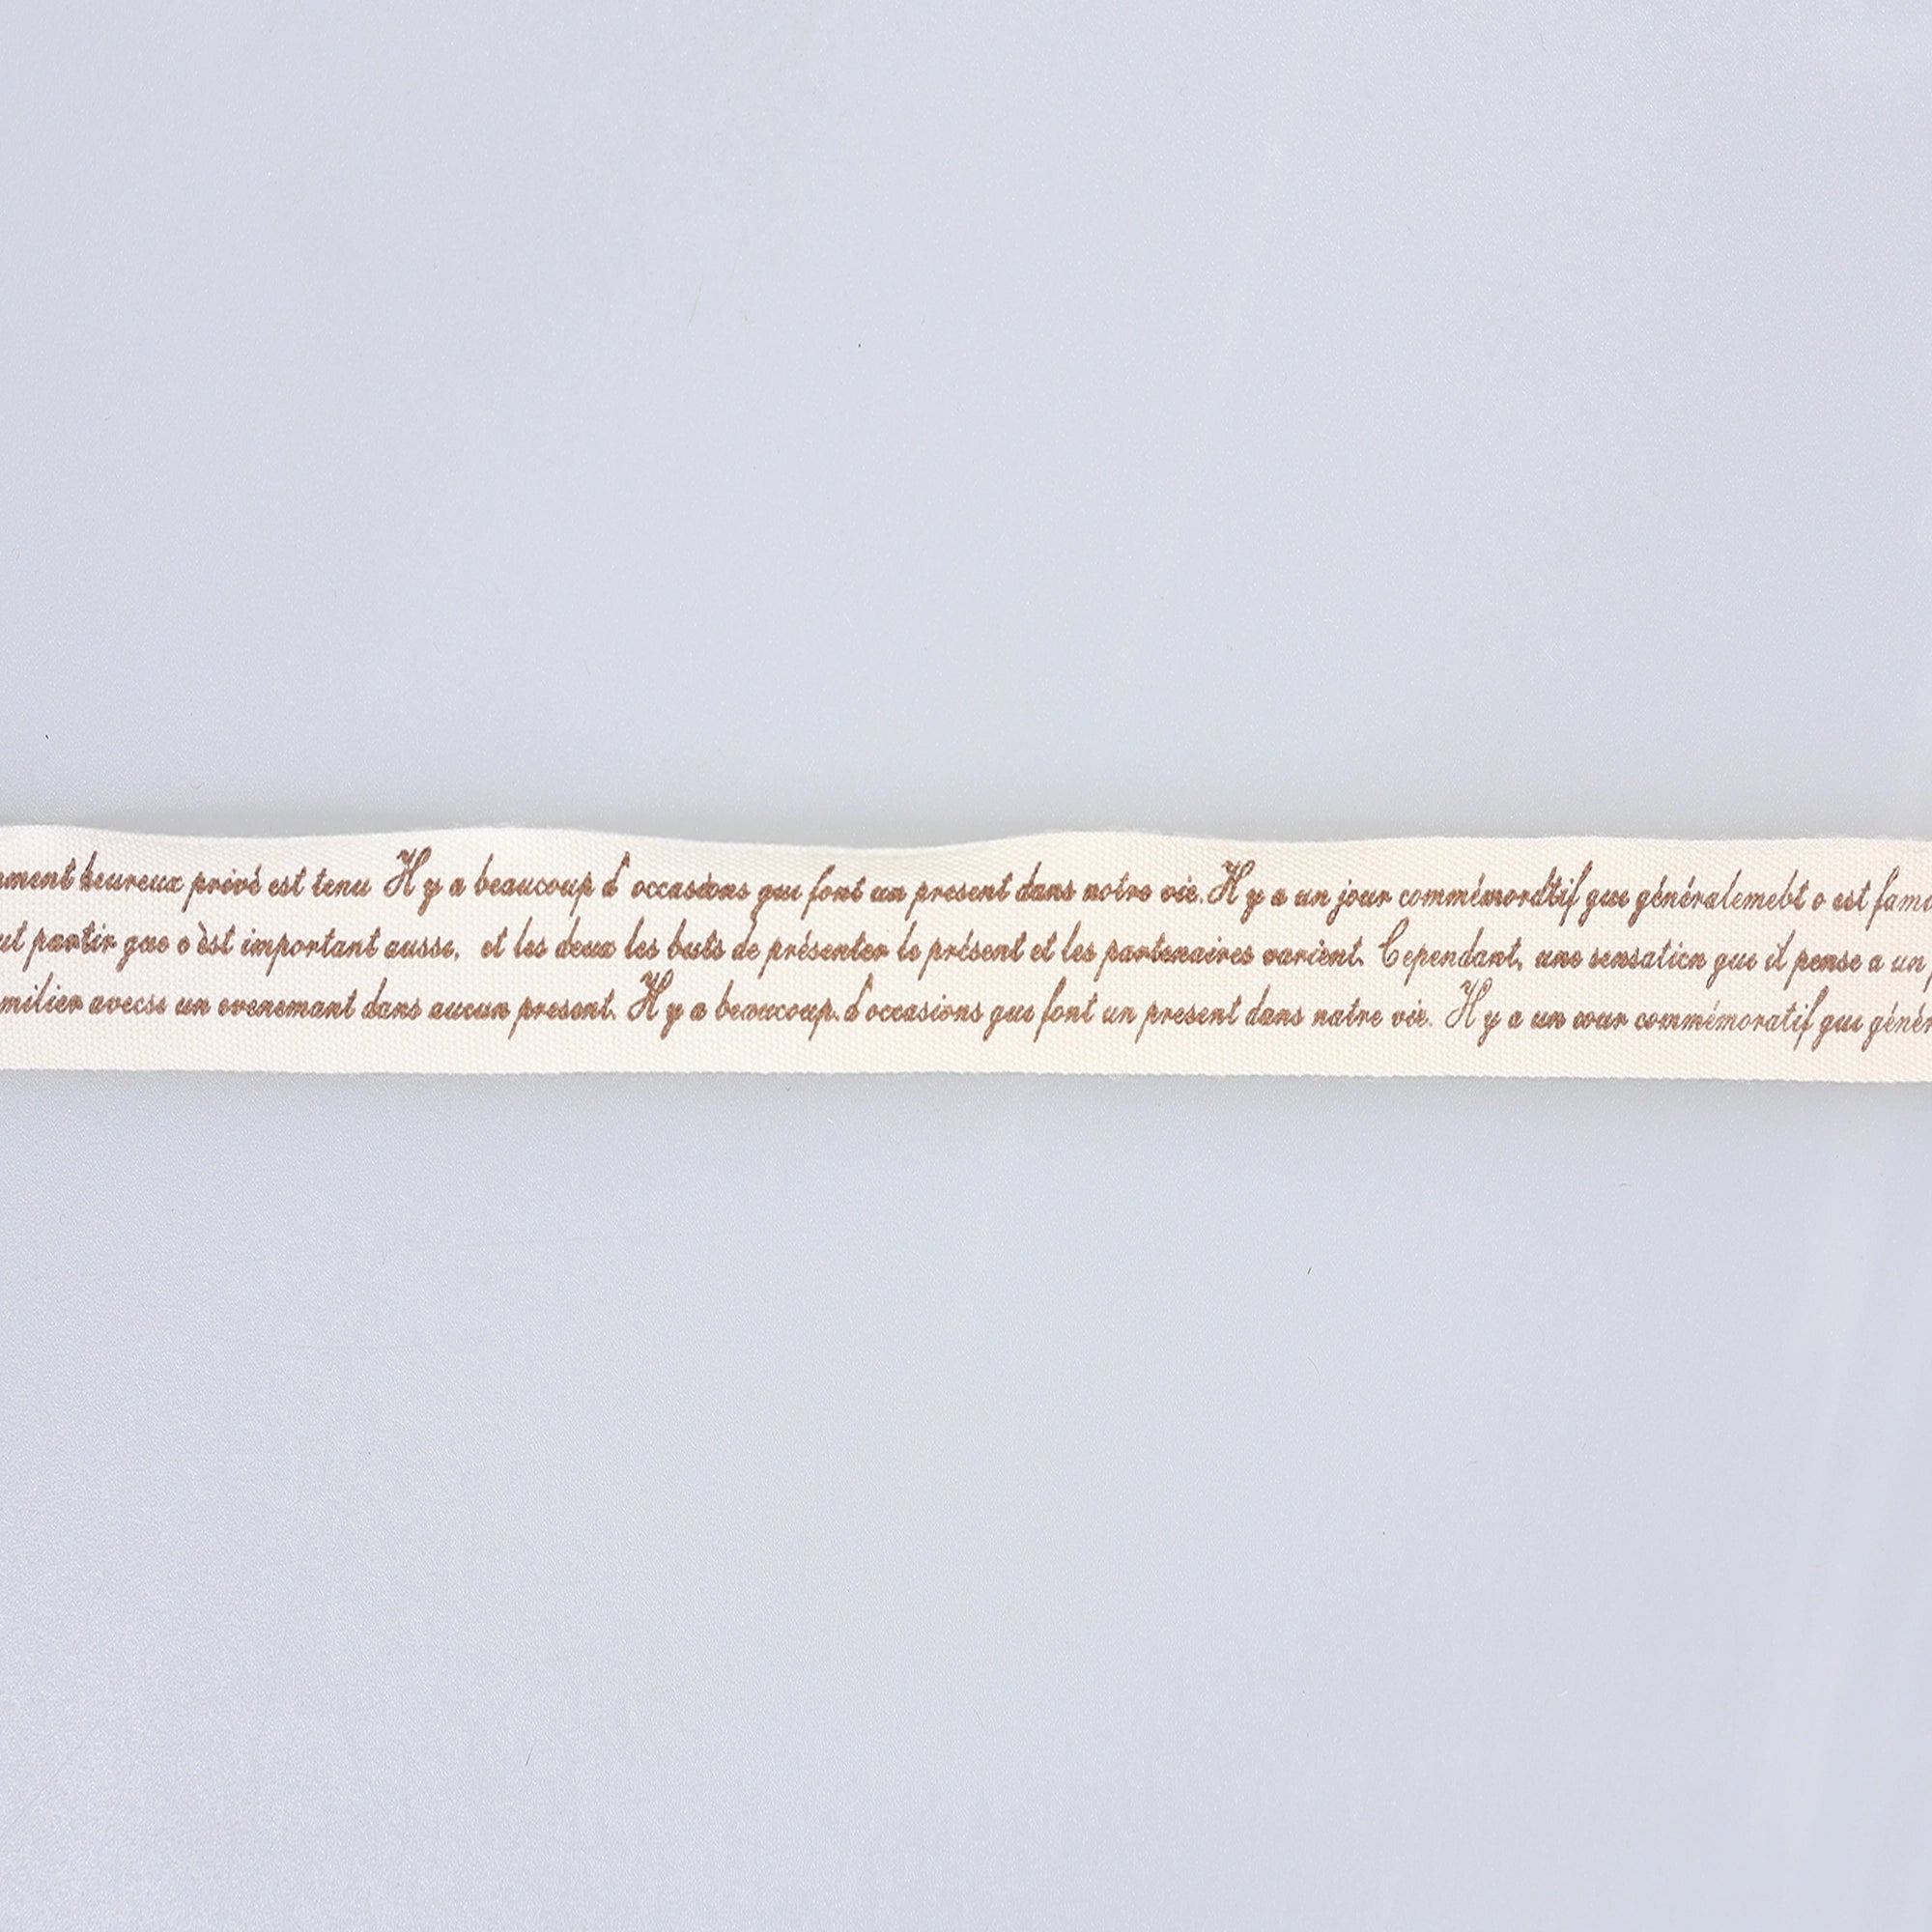 ment heureux privé est tenu Il y a beaucoup d' occasions qui font un present dans notre vie. Il y a un jour commémordtif que généralemebt o est fami
ut partir que o èst important ausse, et les deux les buts de présenter le présent et les partenaires varient. Cependant, une sensation que il pense a un
milier avecse un evenemant dans aucun present. Il y a beaucoup d'occasions qui font un present dans natre vie. Il y a un cour commémoratif qui génér